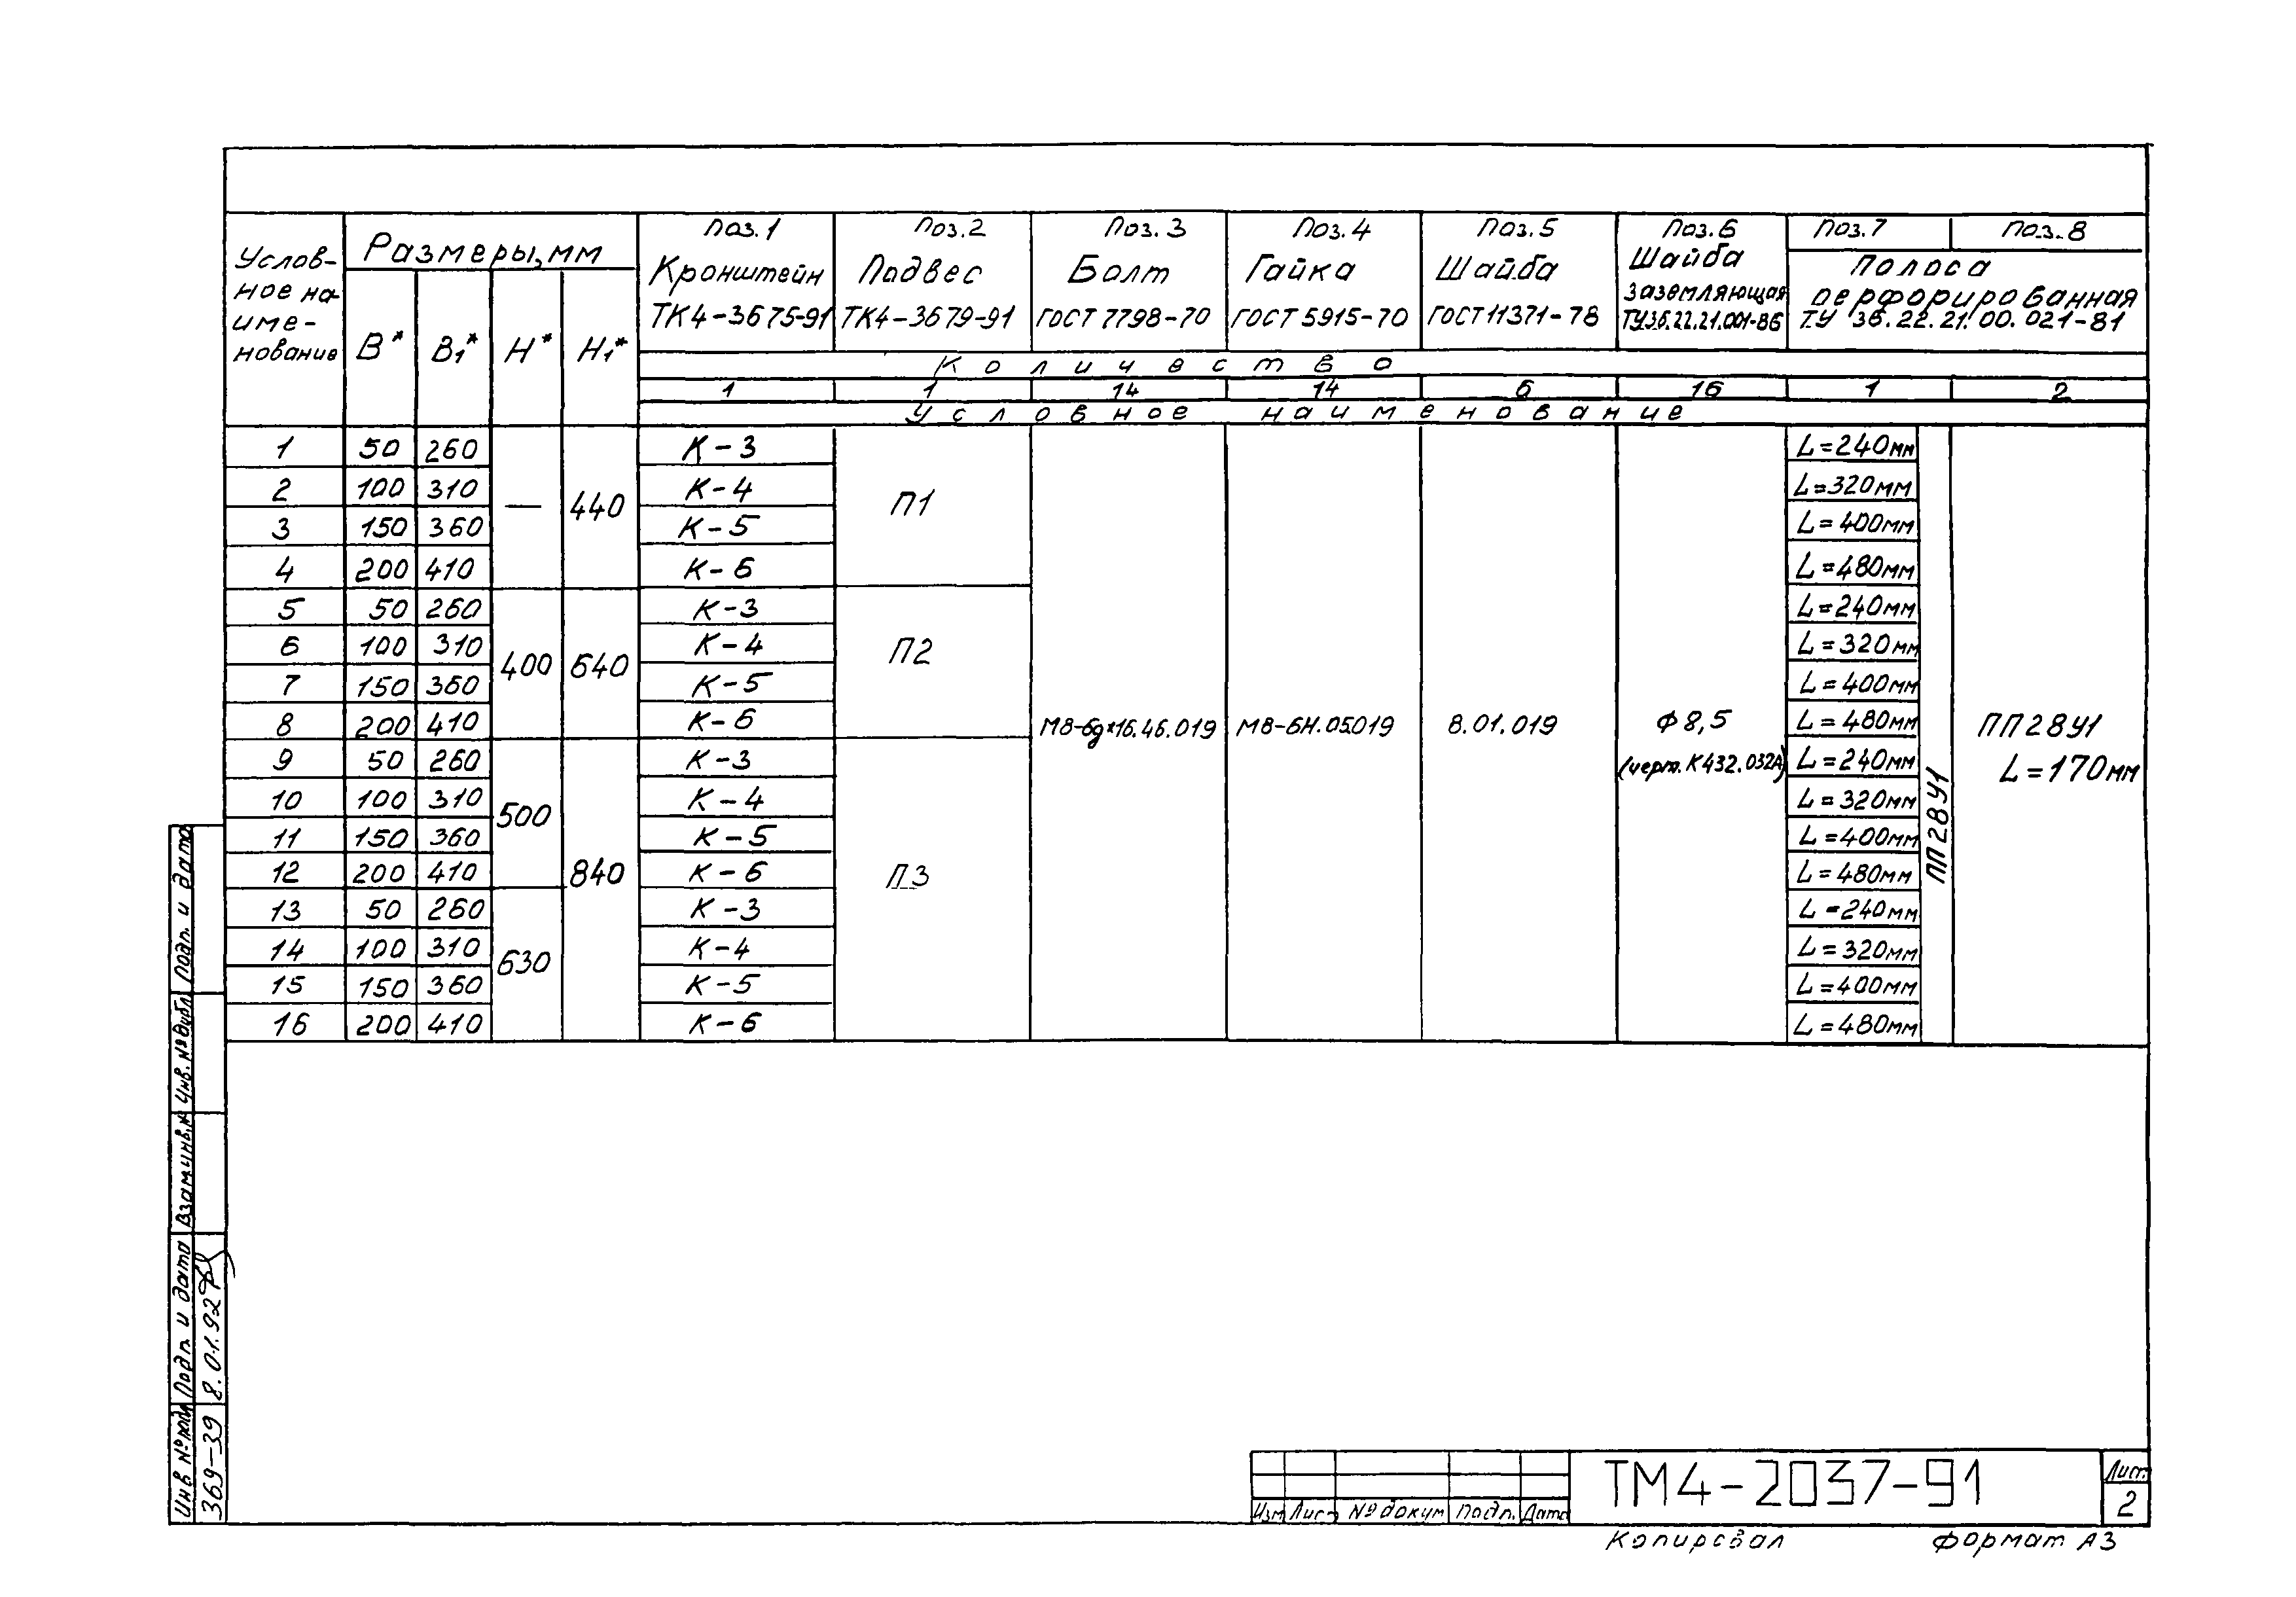 Услов-
ное на-
име-
нование
Размеры, мм
В* В₁* Н* Н₁*
Поз.1 Поз.2 Поз.3 Поз.4 Поз.5 Поз.6 Поз.7 Поз.8
Кронштейн Подвес Болт Гайка Шайба Шайба заземляющая Полоса перфорированная
ТК4-3675-91 ТК4-3679-91 ГОСТ 7798-70 ГОСТ 5915-70 ГОСТ 11371-78 ТУ36.22.21.001-86 ТУ 36.22.21.00.021-81
Количество
1 1 14 14 6 16 1 2
Условное наименование
1 50 260 К-3 L=240мм
2 100 310 К-4 L=320мм
— 440 П1
3 150 360 К-5 L=400мм
4 200 410 К-6 L=480мм
5 50 260 К-3 L=240мм
6 100 310 К-4 L=320мм
400 640 П2
7 150 360 К-5 L=400мм
8 200 410 К-6 L=480мм
М8-6gx16.46.019 М8-6Н.05.019 8.01.019 Ф8,5 ПП28У1
9 50 260 К-3 L=240мм
(черт. К432.032А) L=170мм
10 100 310 К-4 L=320мм
500 ПП28У1
11 150 360 К-5 L=400мм
12 200 410 К-6 L=480мм
840 П3
13 50 260 К-3 L=240мм
14 100 310 К-4 L=320мм
630
15 150 360 К-5 L=400мм
16 200 410 К-6 L=480мм
Подп. и дата
Инв. № дубл.
Взам.инв.№
Подп. и дата
8.01.92г
Инв № подл
369-39
Изм Лист № докум Подп. Дата
ТМ4-2037-91
Лист
2
Копировал Формат А3